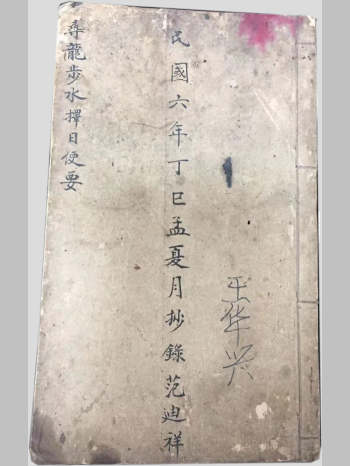 王华兴
民國六年丁巳孟夏月抄錄范迪祥
尋龍步水擇日便要